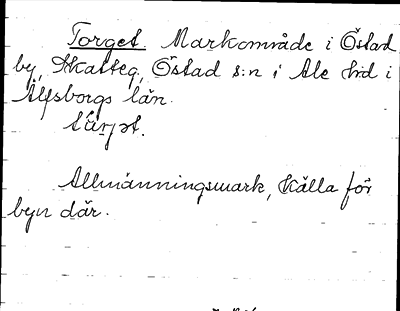 Torget. Markområde i Östad
by, Skatteg, Östad s:n i Ale hrd i
Älfsborgs län.

Allmänningsmark, Källa för
byn där.